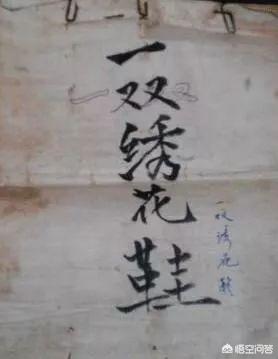 一双绣花鞋
一双绣花鞋
悟空问答